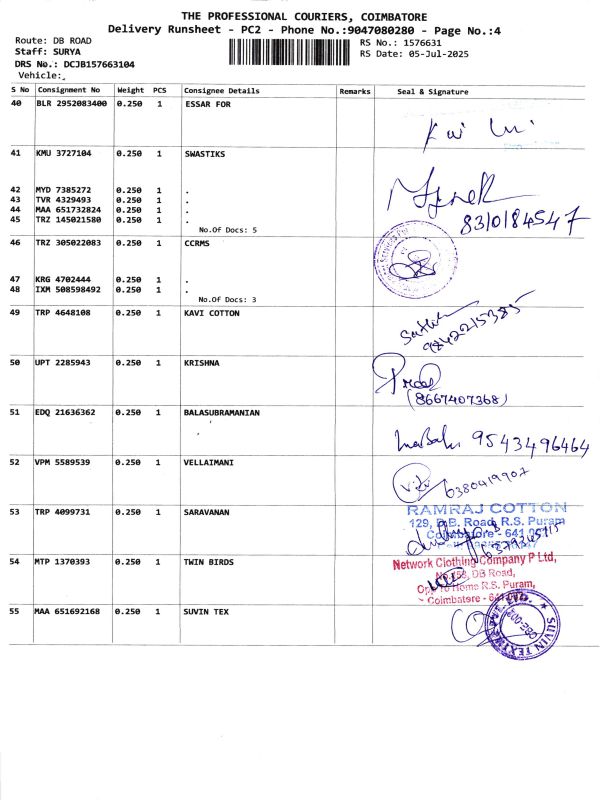 THE PROFESSIONAL COURIERS, COIMBATORE
Delivery Runsheet - PC2 - Phone No.:9047080280 - Page No.:4
Route: DB ROAD
RS No.: 1576631
Staff: SURYA
RS Date: 05-Jul-2025
DRS No.: DCJB157663104
Vehicle:
S No Consignment No Weight PCS Consignee Details Remarks Seal & Signature
40 BLR 2952083400 0.250 1 ESSAR FOR
41 KMU 3727104 0.250 1 SWASTIKS
42 MYD 7385272 0.250 1 .
43 TVR 4329493 0.250 1 .
44 MAA 651732824 0.250 1 .
45 TRZ 145021580 0.250 1 .
8310184547
No.Of Docs: 5
46 TRZ 305022083 0.250 1 CCRMS
47 KRG 4702444 0.250 1 .
48 IXM 508598492 0.250 1 .
No.Of Docs: 3
49 TRP 4648108 0.250 1 KAVI COTTON
9842215385
50 UPT 2285943 0.250 1 KRISHNA
(8667407368)
51 EDQ 21636362 0.250 1 BALASUBRAMANIAN
9543496464
52 VPM 5589539 0.250 1 VELLAIMANI
6380419907
53 TRP 4099731 0.250 1 SARAVANAN
RAMRAJ COTTON
129, D.B. Road, R.S. Puram
Coimbatore - 641 002
54 MTP 1370393 0.250 1 TWIN BIRDS
Network Clothing Company P Ltd,
No.153, DB Road,
R.S. Puram,
Coimbatore - 641
55 MAA 651692168 0.250 1 SUVIN TEX
SUVIN TEX
CBE-002